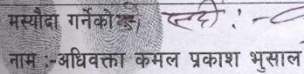 मस्यौदा गर्नेको सही :-
नाम :-अधिवक्ता कमल प्रकाश भुसाल